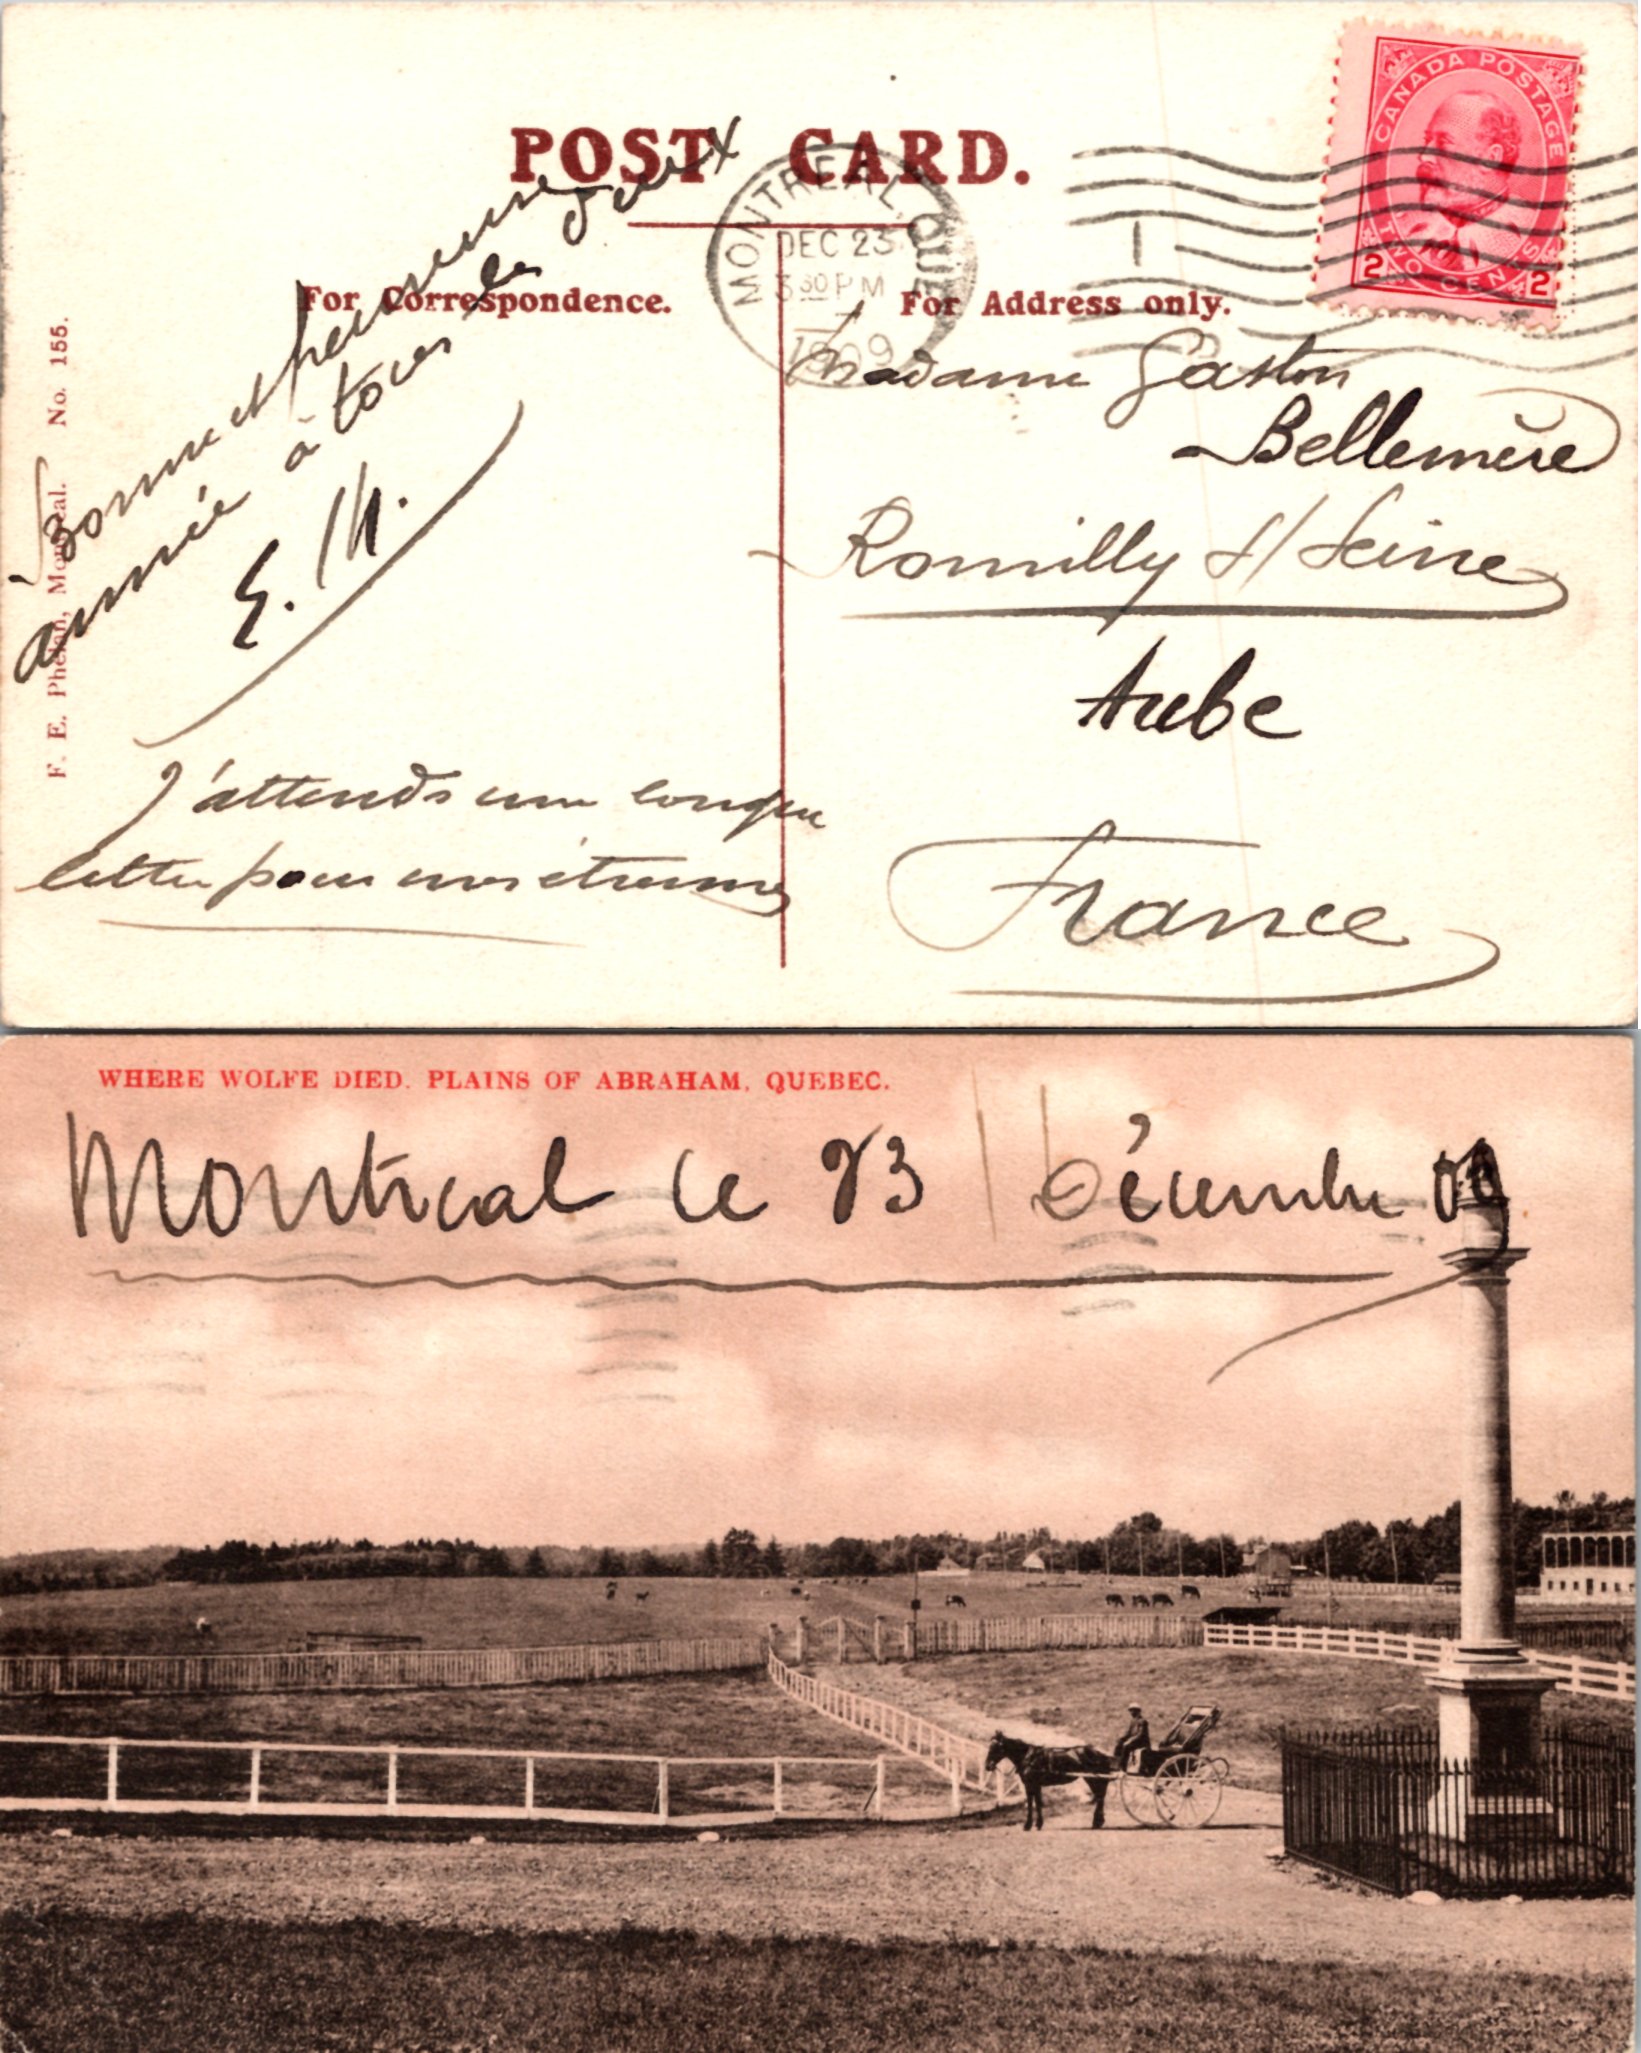 POST CARD.
CANADA POSTAGE
TWO CENTS
2 2
MONTREAL, QUE
DEC 23
3 30 PM
1909
1
For Correspondence.
For Address only.
F. E. Phelan, Montreal. No. 155.
Bonne et heureuse
année à tous les deux
E. M.
J'attends une longue
lettre pour mes étrennes
Madame Gaston
Bellemère
Romilly s/ Seine
Aube
France
WHERE WOLFE DIED. PLAINS OF ABRAHAM, QUEBEC.
Montreal le 23 Décembre 09